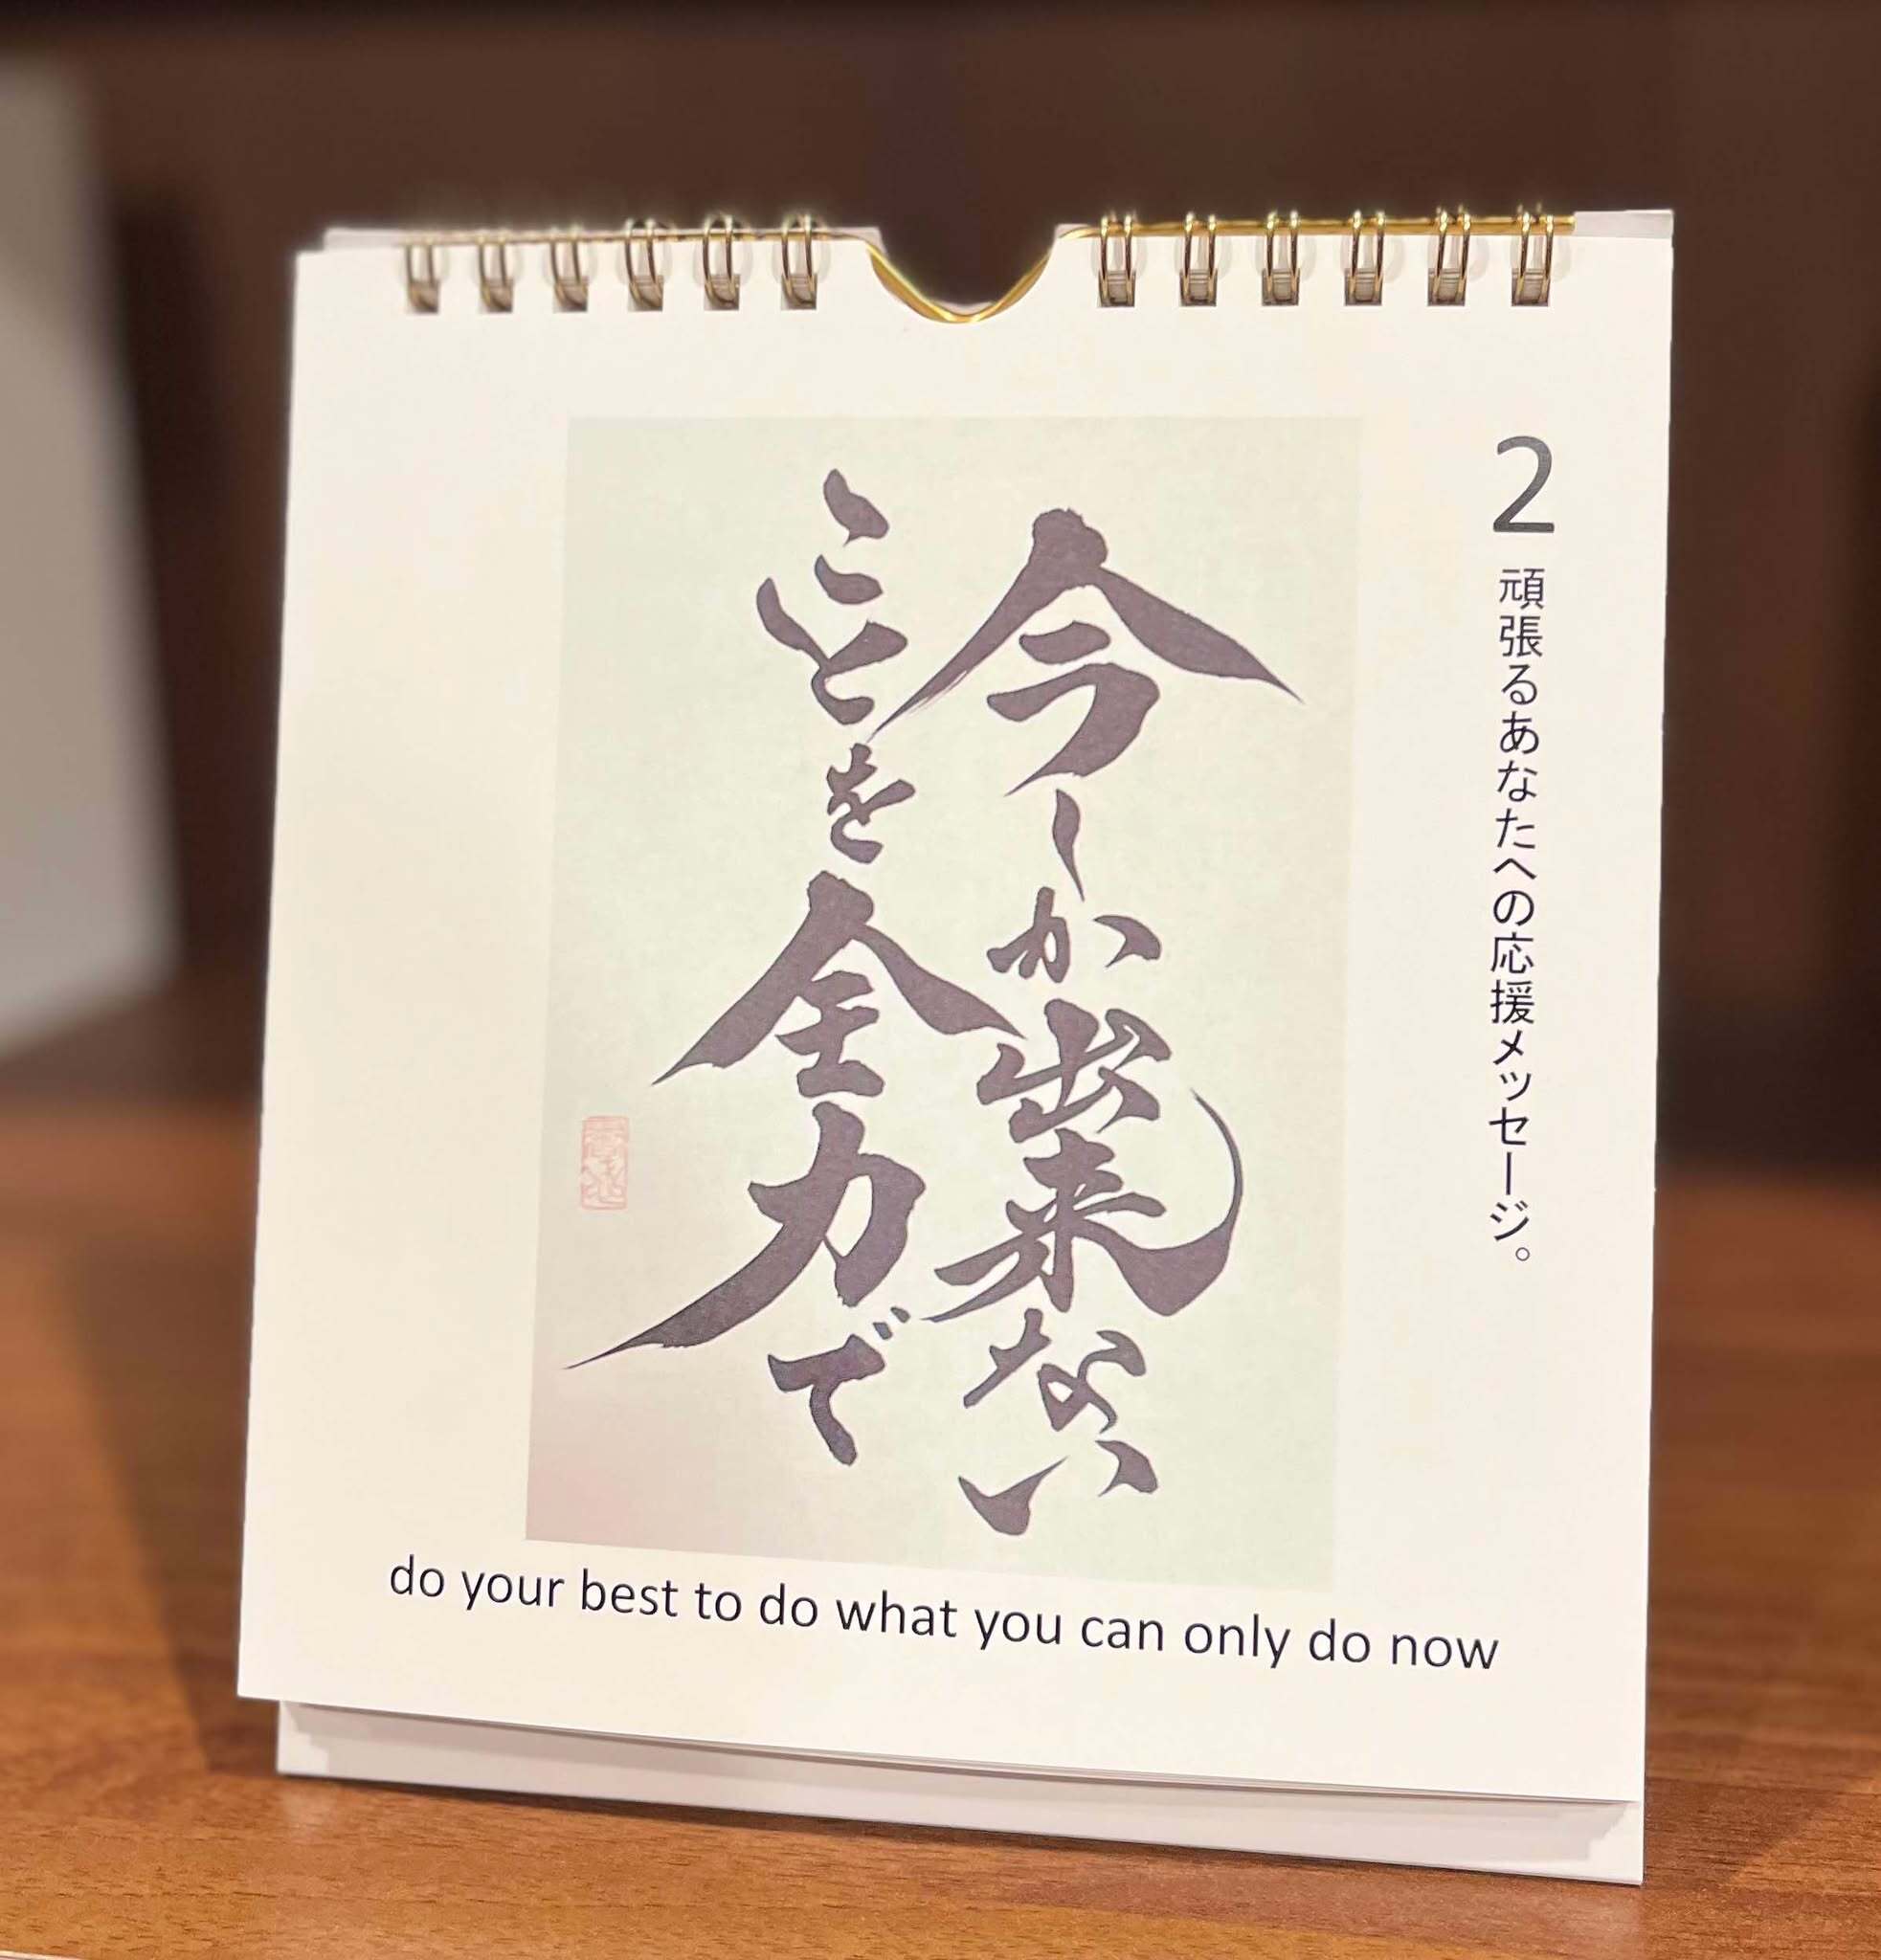 2
頑張るあなたへの応援メッセージ。
今しか出来ない
ことを全力で
do your best to do what you can only do now